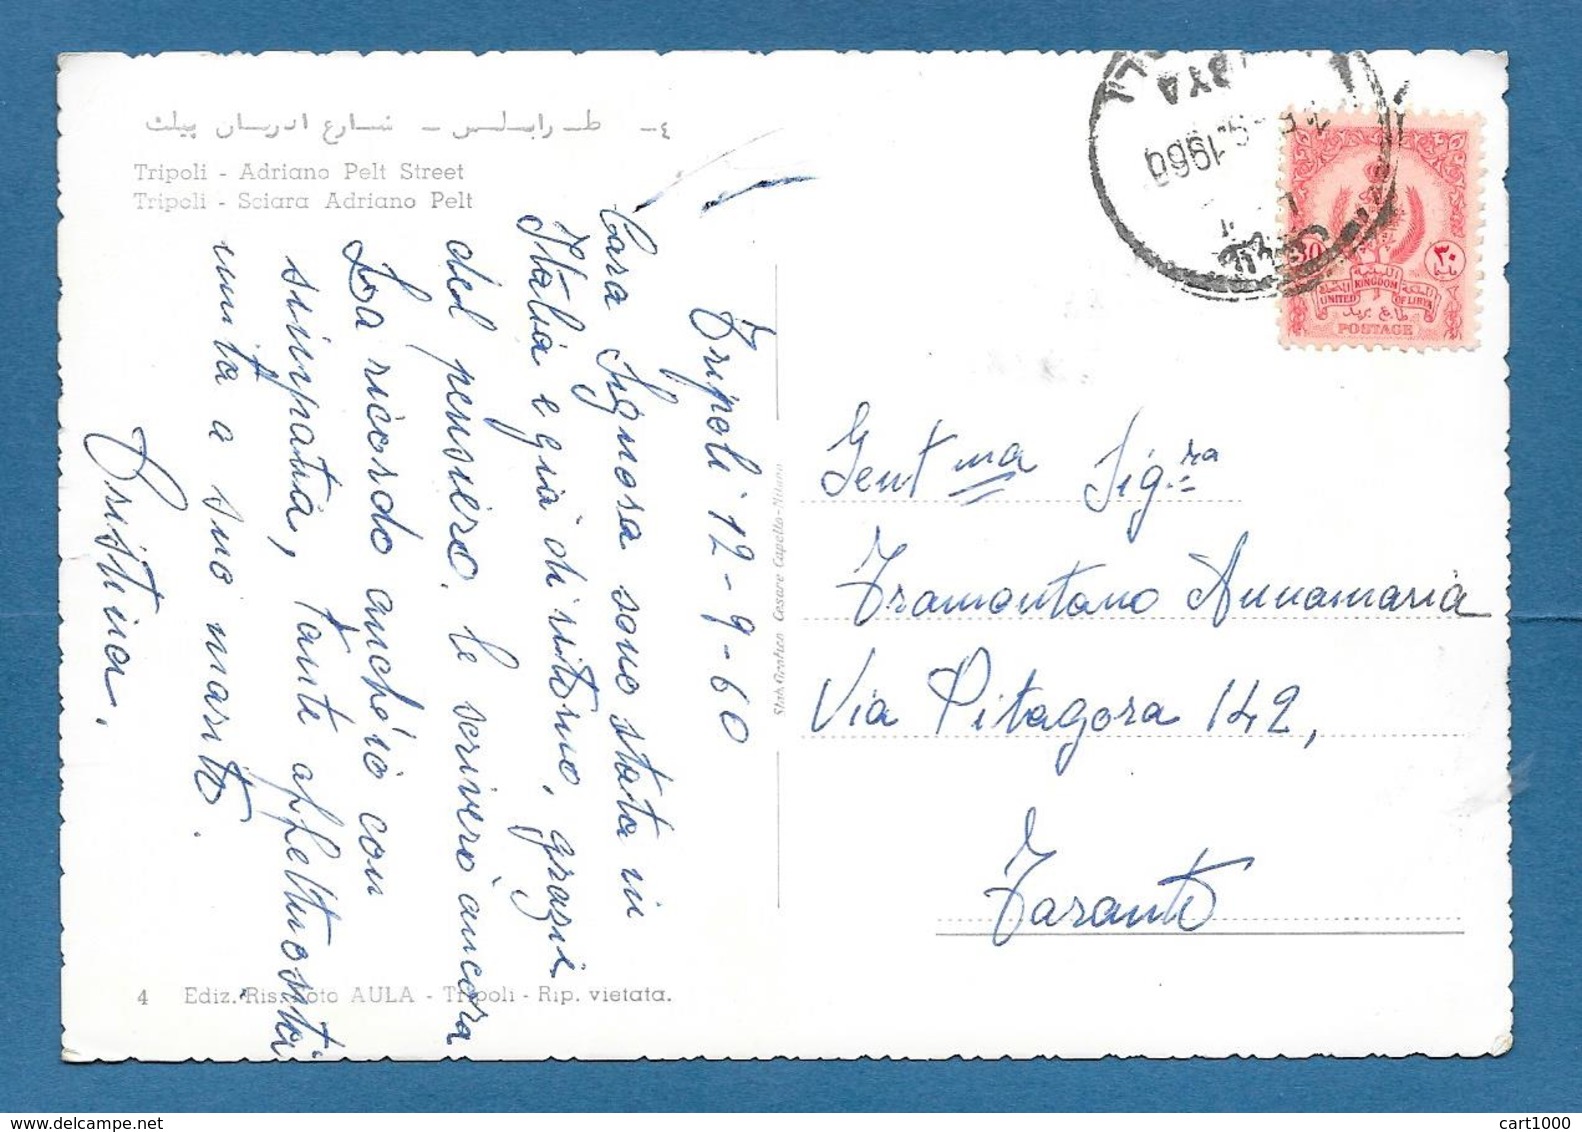 ٤- طـرابـلـس - شـارع ادريـان پيلت
Tripoli - Adriano Pelt Street
Tripoli - Sciara Adriano Pelt
Tripoli 12-9-60
Cara Signora sono stata in
Italia e già di ritorno, grazie
del pensiero. le scriverò ancora
La ricordo anch'io con
simpatia, tante affettuosità
unita a suo marito.
Cristina.
4 Ediz. Ris. Foto AULA - Tripoli - Rip. vietata.
Stab. Grafico Cesare Capello-Milano
LIBYA
1960
30
٣٠
UNITED KINGDOM OF LIBYA
POSTAGE
Gent ma Sig ra
Tramontano Annamaria
Via Pitagora 142,
Taranto
cart1000